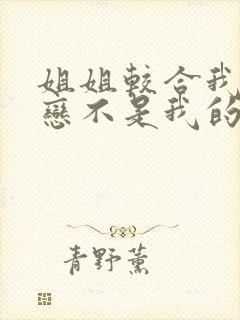 姐姐較合我
戀不是我的
青野薰